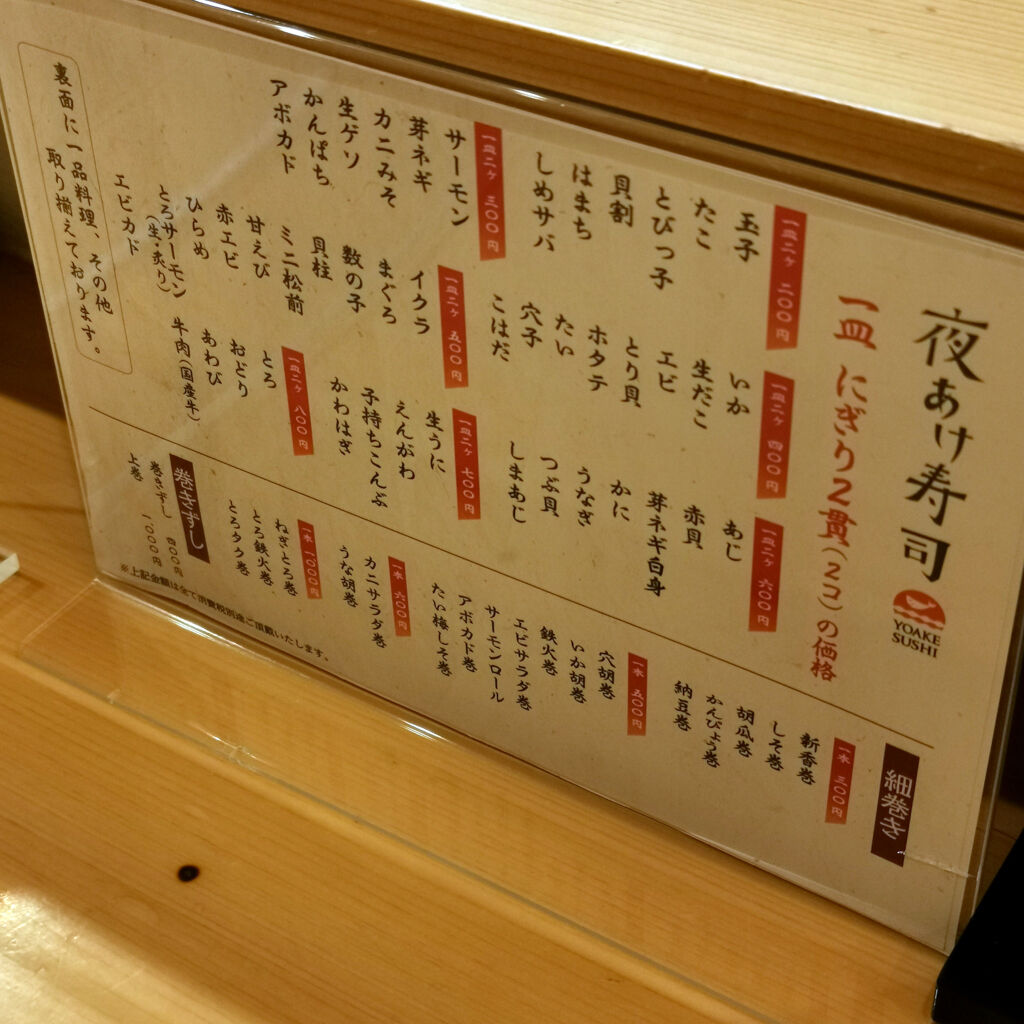 夜あけ寿司
YOAKE
SUSHI
一皿 にぎり2貫(2コ)の価格
一皿二ヶ 二〇〇円
玉子
たこ
とびっ子
貝割
はまち
しめサバ
一皿二ヶ 三〇〇円
サーモン
芽ネギ
カニみそ
生ゲソ
かんぱち
アボカド
一皿二ヶ 四〇〇円
いか
生だこ
エビ
とり貝
ホタテ
たい
穴子
こはだ
一皿二ヶ 五〇〇円
イクラ
まぐろ
数の子
貝柱
ミニ松前
甘えび
赤エビ
ひらめ
とろサーモン
(生・炙り)
エビカド
一皿二ヶ 六〇〇円
あじ
赤貝
芽ネギ白身
かに
うなぎ
つぶ貝
しまあじ
一皿二ヶ 七〇〇円
生うに
えんがわ
子持ちこんぶ
かわはぎ
一皿二ヶ 八〇〇円
とろ
おどり
あわび
牛肉(国産牛)
裏面に一品料理、その他
取り揃えております。
細巻き
一本 三〇〇円
新香巻
しそ巻
胡瓜巻
かんぴょう巻
納豆巻
一本 五〇〇円
穴胡巻
いか胡巻
鉄火巻
エビサラダ巻
サーモンロール
アボカド巻
たい梅しそ巻
一本 六〇〇円
カニサラダ巻
うな胡巻
一本 一〇〇〇円
ねぎとろ巻
とろ鉄火巻
とろタク巻
巻きずし
巻きずし 四〇〇円
上巻 一〇〇〇円
※上記金額は全て消費税別途ご頂戴いたします。